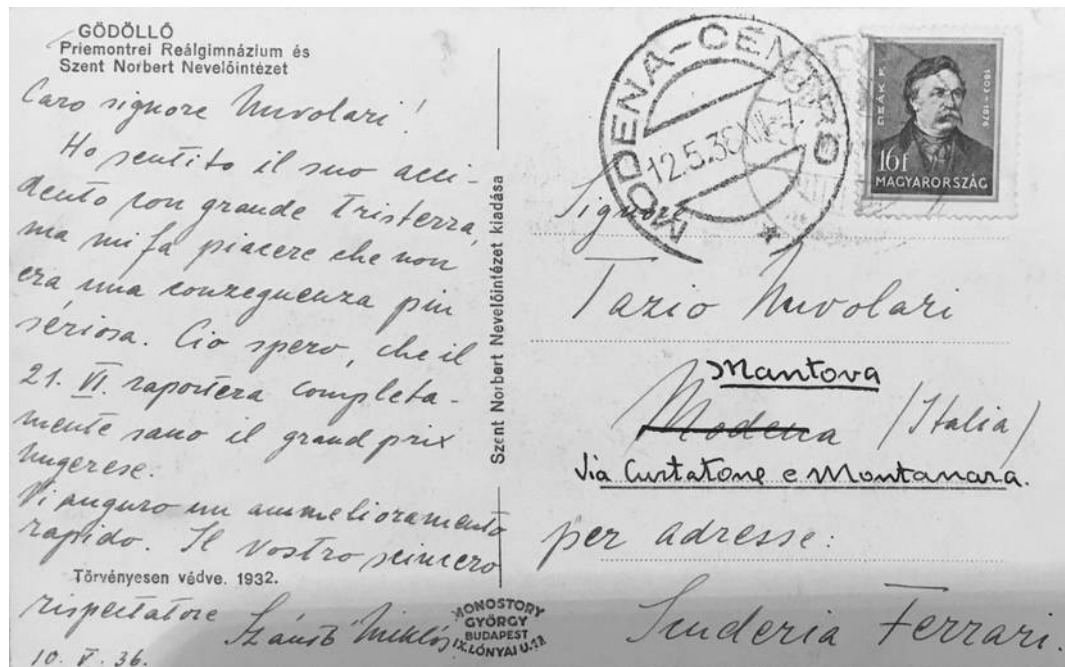 GÖDÖLLŐ
Priemontrei Reálgimnázium és
Szent Norbert Nevelőintézet
Caro signore Nuvolari!
Ho sentito il suo acci-
dento con grande tristezza,
ma mi fa piacere che non
era una conzeguenza piu
seriosa. Cio spero, che il
21. VI. raportera completa-
mente sano il grand prix
ungerese.
Vi auguro un ammelioramento
rapido. Il Vostro scincero
Törvényesen védve. 1932.
rispettatore
Szántó Miklós
10. V. 36.
Szent Norbert Nevelőintézet kiadása
MONOSTORY
GYÖRGY
BUDAPEST
IX. LÓNYAI U.
MODENA-CENTRO
12.5.36
DEÁK F.
1803-1876
16f
MAGYARORSZÁG
Signore
Tazio Nuvolari
Mantova
Modena (Italia)
Via Curtatone e Montanara.
per adresse:
Scuderia Ferrari.